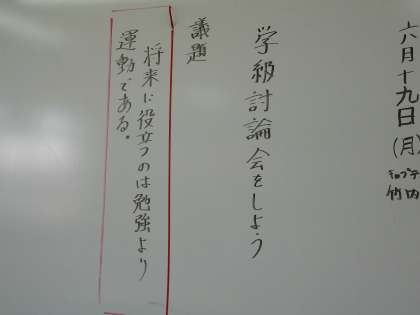 六月十九日(月)
竹内
学級討論会をしよう
議題
将来に役立つのは勉強より
運動である。